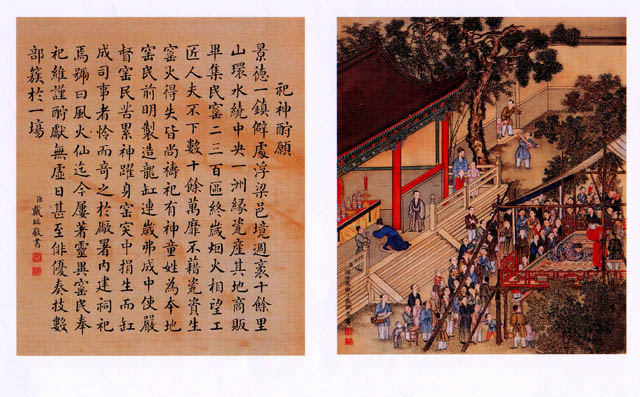 祀神酬願
景德一鎮僻處浮梁邑境週袤十餘里
山環水繞中央一洲緣瓷產其地商販
畢集民窑二三百區終歲烟火相望工
匠人夫不下數十餘萬靡不藉瓷資生
窑火得失皆尚禱祀有神童姓為本地
窑民前明製造龍缸連歲弗成中使嚴
督窑民苦累神躍身窑突中捐生而缸
成司事者憐而奇之於廠署內建祠祀
焉號曰風火仙迄今屢著靈異窑民奉
祀維謹酬獻無虛日甚至俳優奏技數
部簇於一場
臣戴臨敬書